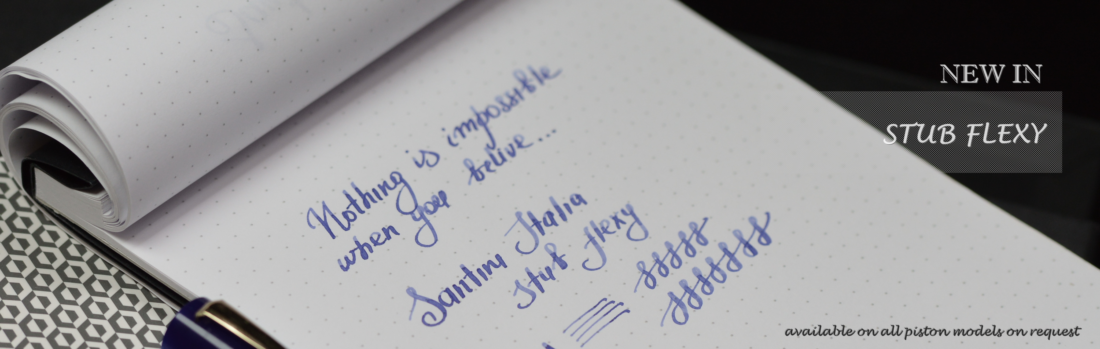 Nothing is impossible
when you belive...
Santini Italia
stub flexy
NEW IN
STUB FLEXY
available on all piston models on request